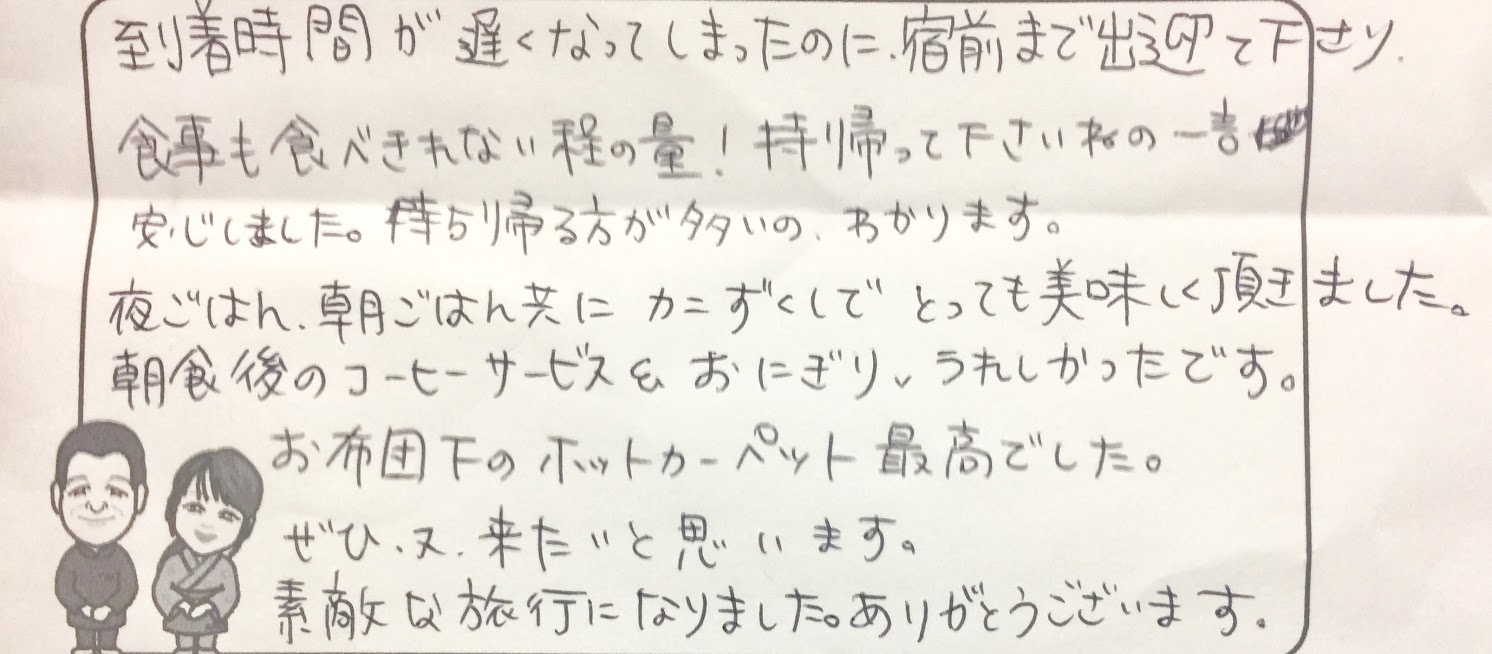 到着時間が遅くなってしまったのに、宿前まで出迎て下さり、
食事も食べきれない程の量！持り帰って下さいねの一言
安心しました。持ち帰る方が多いの、わかります。
夜ごはん、朝ごはん共にカニずくしでとっても美味しく頂きました。
朝食後のコーヒーサービス＆おにぎり、うれしかったです。
お布団下のホットカーペット最高でした。
ぜひ、又、来たいと思います。
素敵な旅行になりました。ありがとうございます。